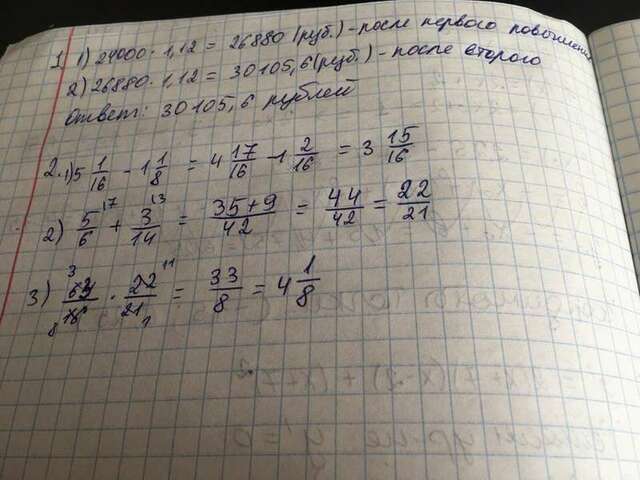 1 1) 24000 · 1,12 = 26880 (руб.) - после первого повышения
2) 26880 · 1,12 = 30105,6 (руб.) - после второго
Ответ: 30105,6 рублей
2. 1) 5 1/16 - 1 1/8 = 4 17/16 - 1 2/16 = 3 15/16
2) 5/6 \17 + 3/14 \13 = 35+9/42 = 44/42 = 22/21
3) 63/16 · 22/21 = 33/8 = 4 1/8